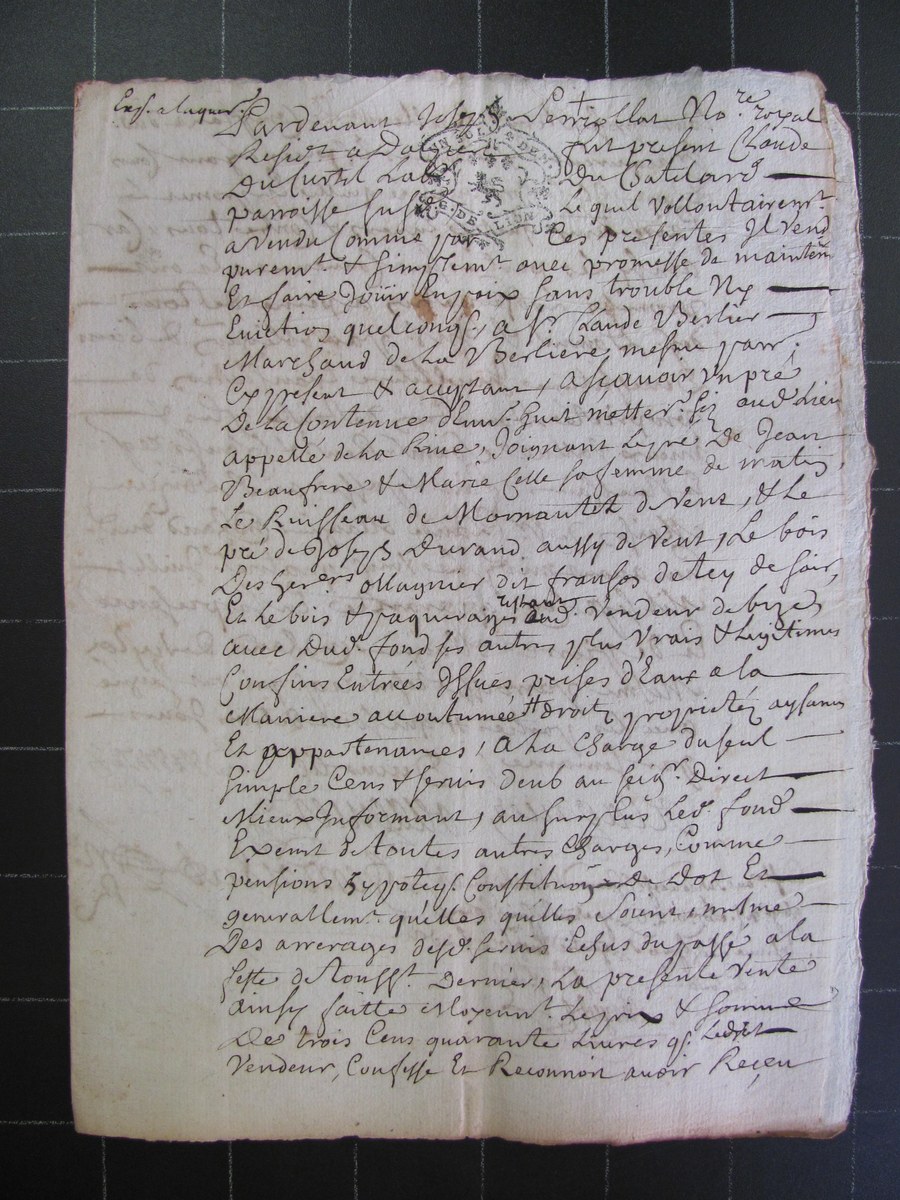 Exp. a laquer.
Pardevant Perriollat No.re royal
Resid.t a fut present Claude
Du Curtil Lab.r Du Chatelard
parroisse susd. Lequel Vollontairem.t
a Vendu Comme par Ces presentes Il Vend
purem.t & simplem.t avec promesse de mainten.
Et faire Joüir En paix sans trouble Ny
Eviction quelconq., a S.r Claude Berlier
Marchand de La Berliere, mesme parr.
Cy present & acceptant, a sçavoir Un pré
De la Contenue d'Env. huit metter. aud. Lieu
appellé de la Rive, Joignant Le pré De Jean
Beaufrere & Marie Celle sa femme de matin,
Le Ruisseau de Mornantet de Vent, & Le
pré de Joseph Durand aussy de Vent, Le bois
Des her.ers Magnier dit franços de Ley de soir,
Et Le bois & paquerages restant aud. Vendeur de bize
avec Dud. fond ses autres plus Vrais & Legitimes
Confins Entrées Issues prises d'Eaux a la
Maniere accoutumée droitz proprietéz aysances
Et appartenances, a La Charge du seul
simple Cens & servis deub au seig.r Direct
Mieux Informant, au surplus Led. fond
Exemt de toutes autres Charges, Comme
pensions hypoteq. Constitution De Dot Et
generallem.t qu'elles qu'elles soient, mesme
Des arrerages desd. servis Echus du passé a la
feste de Touss.t Dernier, La presente Vente
ainsy faitte Moyenn.t Le prix & somme
De trois Cens quarante Livres q. Ledit
Vendeur, Confesse Et Reconnoit avoir Reçeu